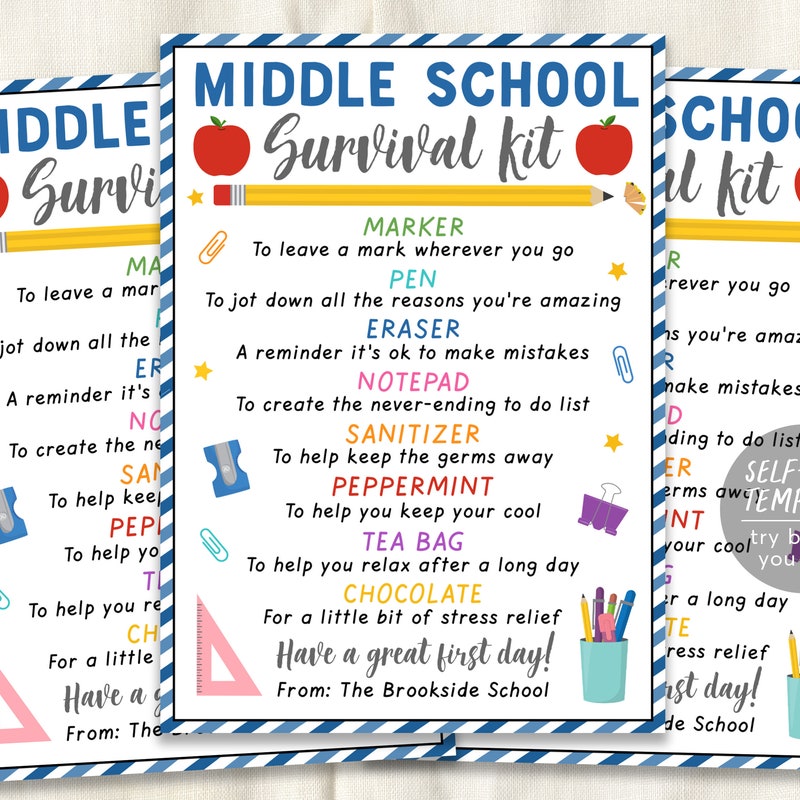 MIDDLE SCHOOL
Survival Kit
MARKER
To leave a mark wherever you go
PEN
To jot down all the reasons you're amazing
ERASER
A reminder it's ok to make mistakes
NOTEPAD
To create the never-ending to do list
SANITIZER
To help keep the germs away
PEPPERMINT
To help you keep your cool
TEA BAG
To help you relax after a long day
CHOCOLATE
For a little bit of stress relief
Have a great first day!
From: The Brookside School
IDDLE
Survi
MA
To leave a mar
jot down all the
ER
A reminder it's
NO
To create the ne
SAN
To help keep
PEP
To help yo
T
To help you re
CH
For a little
Have a g
From: The Bro
SCHOO
al Kit
R
erever you go
ns you're amaz
make mistakes
D
ding to do list
ER
erms away
NT
your cool
G
r a long day
TE
ress relief
rst day!
Brookside School
SELF-
TEMP
try b
you